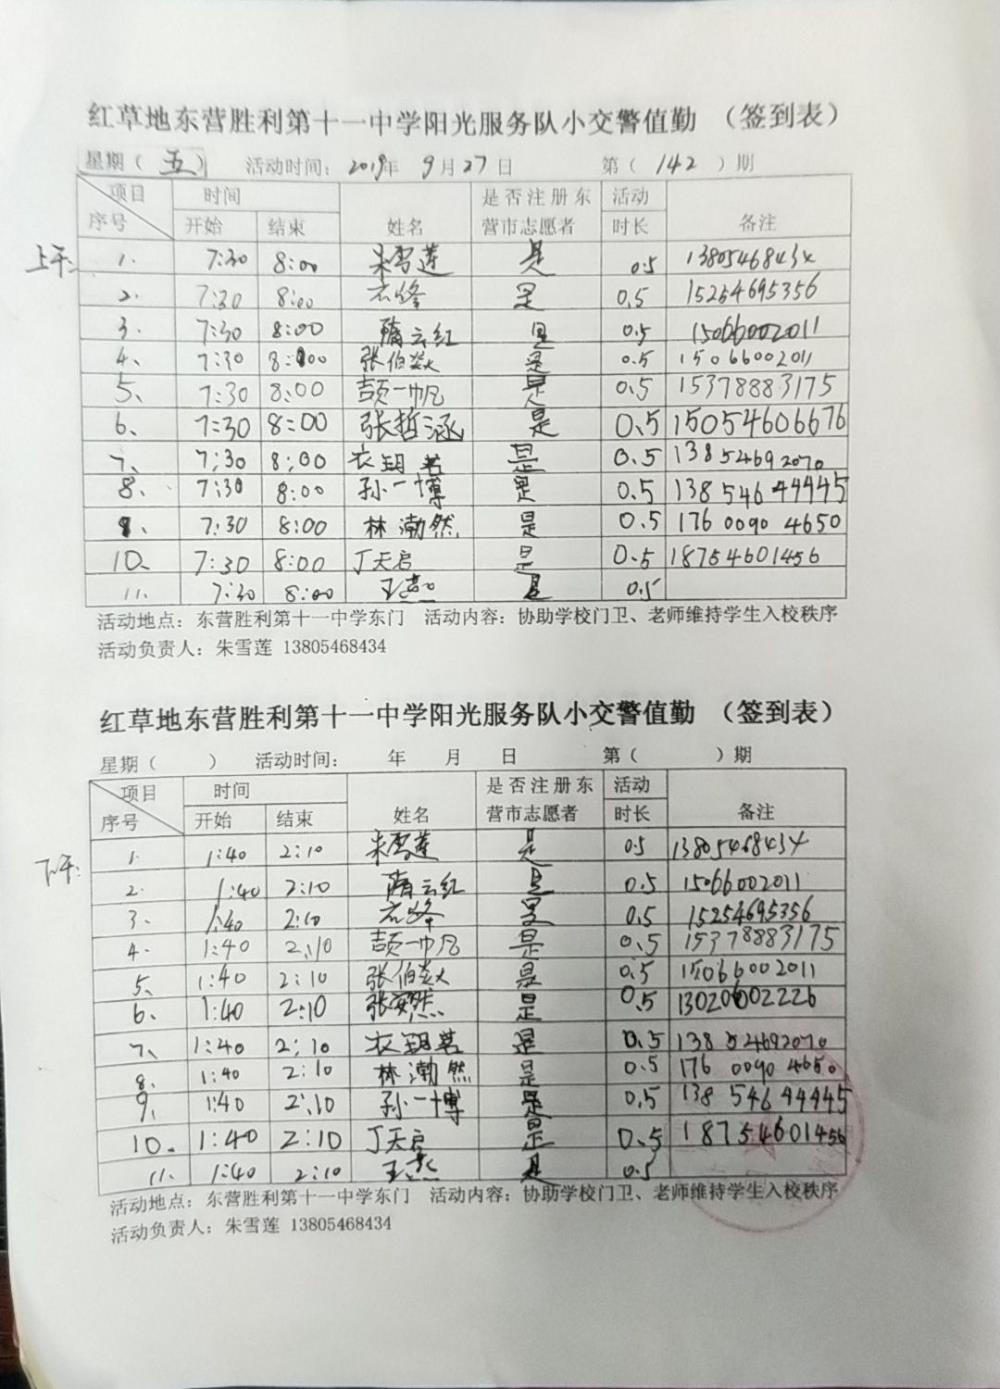 红草地东营胜利第十一中学阳光服务队小交警值勤 （签到表）
星期（ 五 ） 活动时间：2019年 9月27日 第（ 142 ）期
项目 时间 是否注册东 活动
序号 开始 结束 姓名 营市志愿者 时长 备注
上午：
1. 7:30 8:00 朱雪莲 是 0.5 13805468434
2. 7:30 8:00 是 0.5 15254695356
3. 7:30 8:00 隋云红 是 0.5 15066002011
4、 7:30 8:00 张伯焱 是 0.5 15066002011
5、 7:30 8:00 颉一帆 是 0.5 15378883175
6、 7:30 8:00 张哲涵 是 0.5 15054606676
7、 7:30 8:00 衣玥茗 是 0.5 13854692070
8、 7:30 8:00 孙一博 是 0.5 138546 44445
9. 7:30 8:00 林渤然 是 0.5 176 0090 4650
10、 7:30 8:00 丁天启 是 0.5 18754601456
11. 7:30 8:00 王燕 是 0.5
活动地点：东营胜利第十一中学东门 活动内容：协助学校门卫、老师维持学生入校秩序
活动负责人：朱雪莲 13805468434
红草地东营胜利第十一中学阳光服务队小交警值勤 （签到表）
星期（ ） 活动时间： 年 月 日 第（ ）期
项目 时间 是否注册东 活动
序号 开始 结束 姓名 营市志愿者 时长 备注
下午：
1. 1:40 2:10 朱雪莲 是 0.5 13805468434
2. 1:40 2:10 隋云红 是 0.5 15066002011
3. 1:40 2:10 是 0.5 15254695356
4. 1:40 2:10 颉一帆 是 0.5 15378883175
5、 1:40 2:10 张伯焱 是 0.5 15066002011
6、 1:40 2:10 张安然 是 0.5 13020602226
7、 1:40 2:10 衣玥茗 是 0.5 13854692070
8. 1:40 2:10 林渤然 是 0.5 176 0090 4650
9. 1:40 2:10 孙一博 是 0.5 138 546 44445
10. 1:40 2:10 丁天启 是 0.5 18754601456
11. 1:40 2:10 王燕 是 0.5
活动地点：东营胜利第十一中学东门 活动内容：协助学校门卫、老师维持学生入校秩序
活动负责人：朱雪莲 13805468434